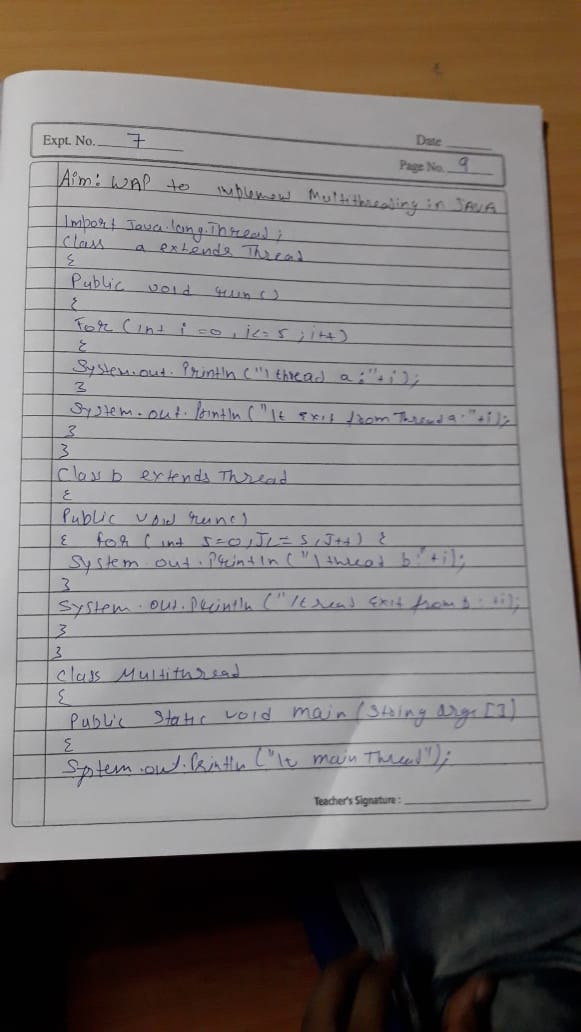 Expt. No. 7
Date
Page No. 9
Aim: WAP to implement Multithreading in JAVA
Import Java.lang.Thread;
Class a extends Thread
{
Public void run()
{
For (int i=0, i<=5; i++)
{
System.out.Println ("\thread a:"+i);
}
System.out.Println ("\t Exit from Thread a:"+i);
}
}
Class b extends Thread
{
Public void run()
{ for (int J=0, J<=5, J++) {
System.out.Println ("\thread b:"+i);
}
System.out.Println ("\thread Exit from b: +i);
}
}
class Multithread
{
Public static void main (String args [])
{
System.out.Println ("\t main Thread");
Teacher's Signature :